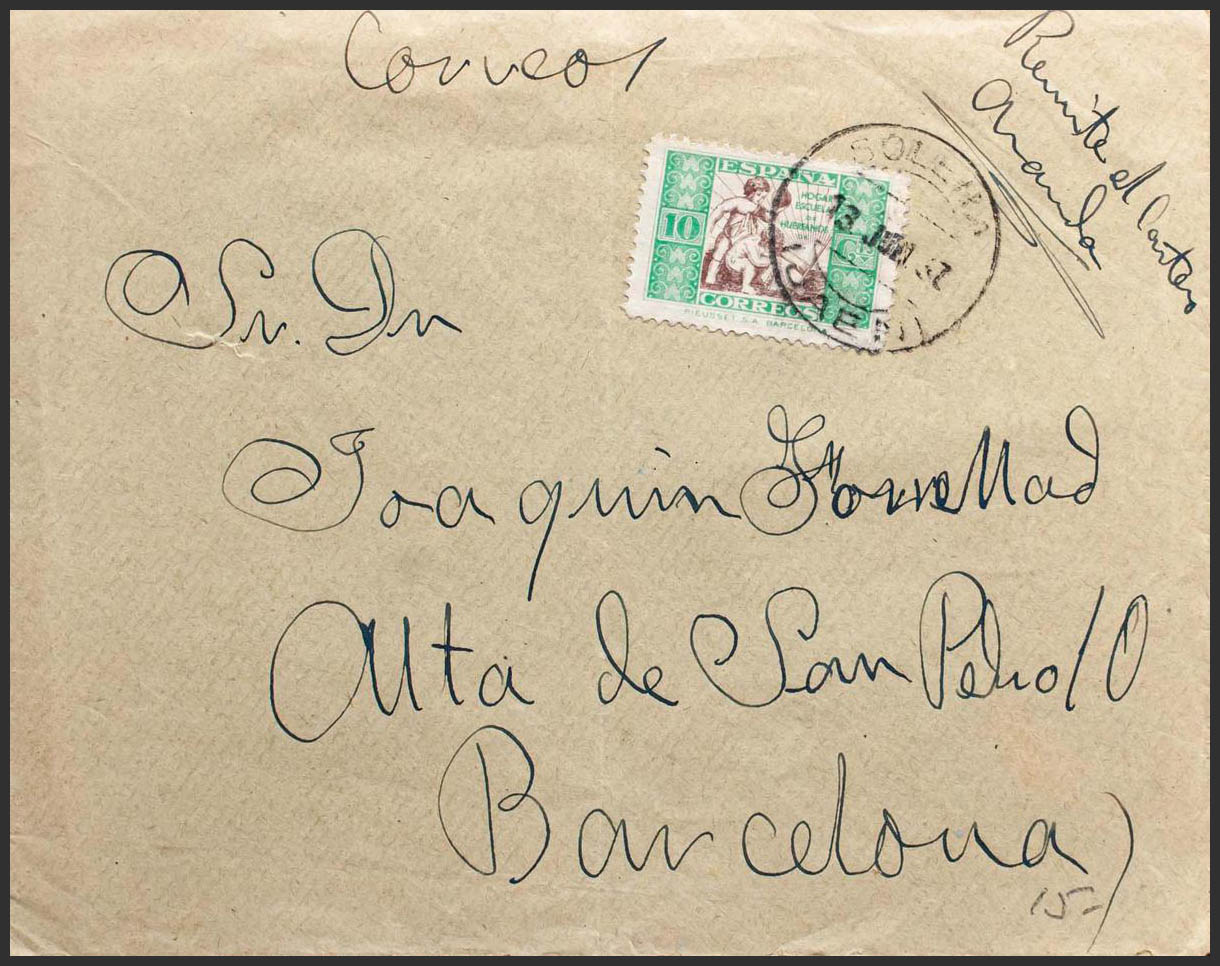 Correos
Remite el Cartero
Aranda
ESPAÑA
HOGAR
ESCUELA
DE
HUERFANOS
DE
10
Cts
CORREOS
RIEUSSET S.A. BARCELONA
SOLERA
13 JUN 37
(JAEN)
Sr. Dn
Joaquin Torrellad
Alta de San Pedro 10
Barcelona
15-